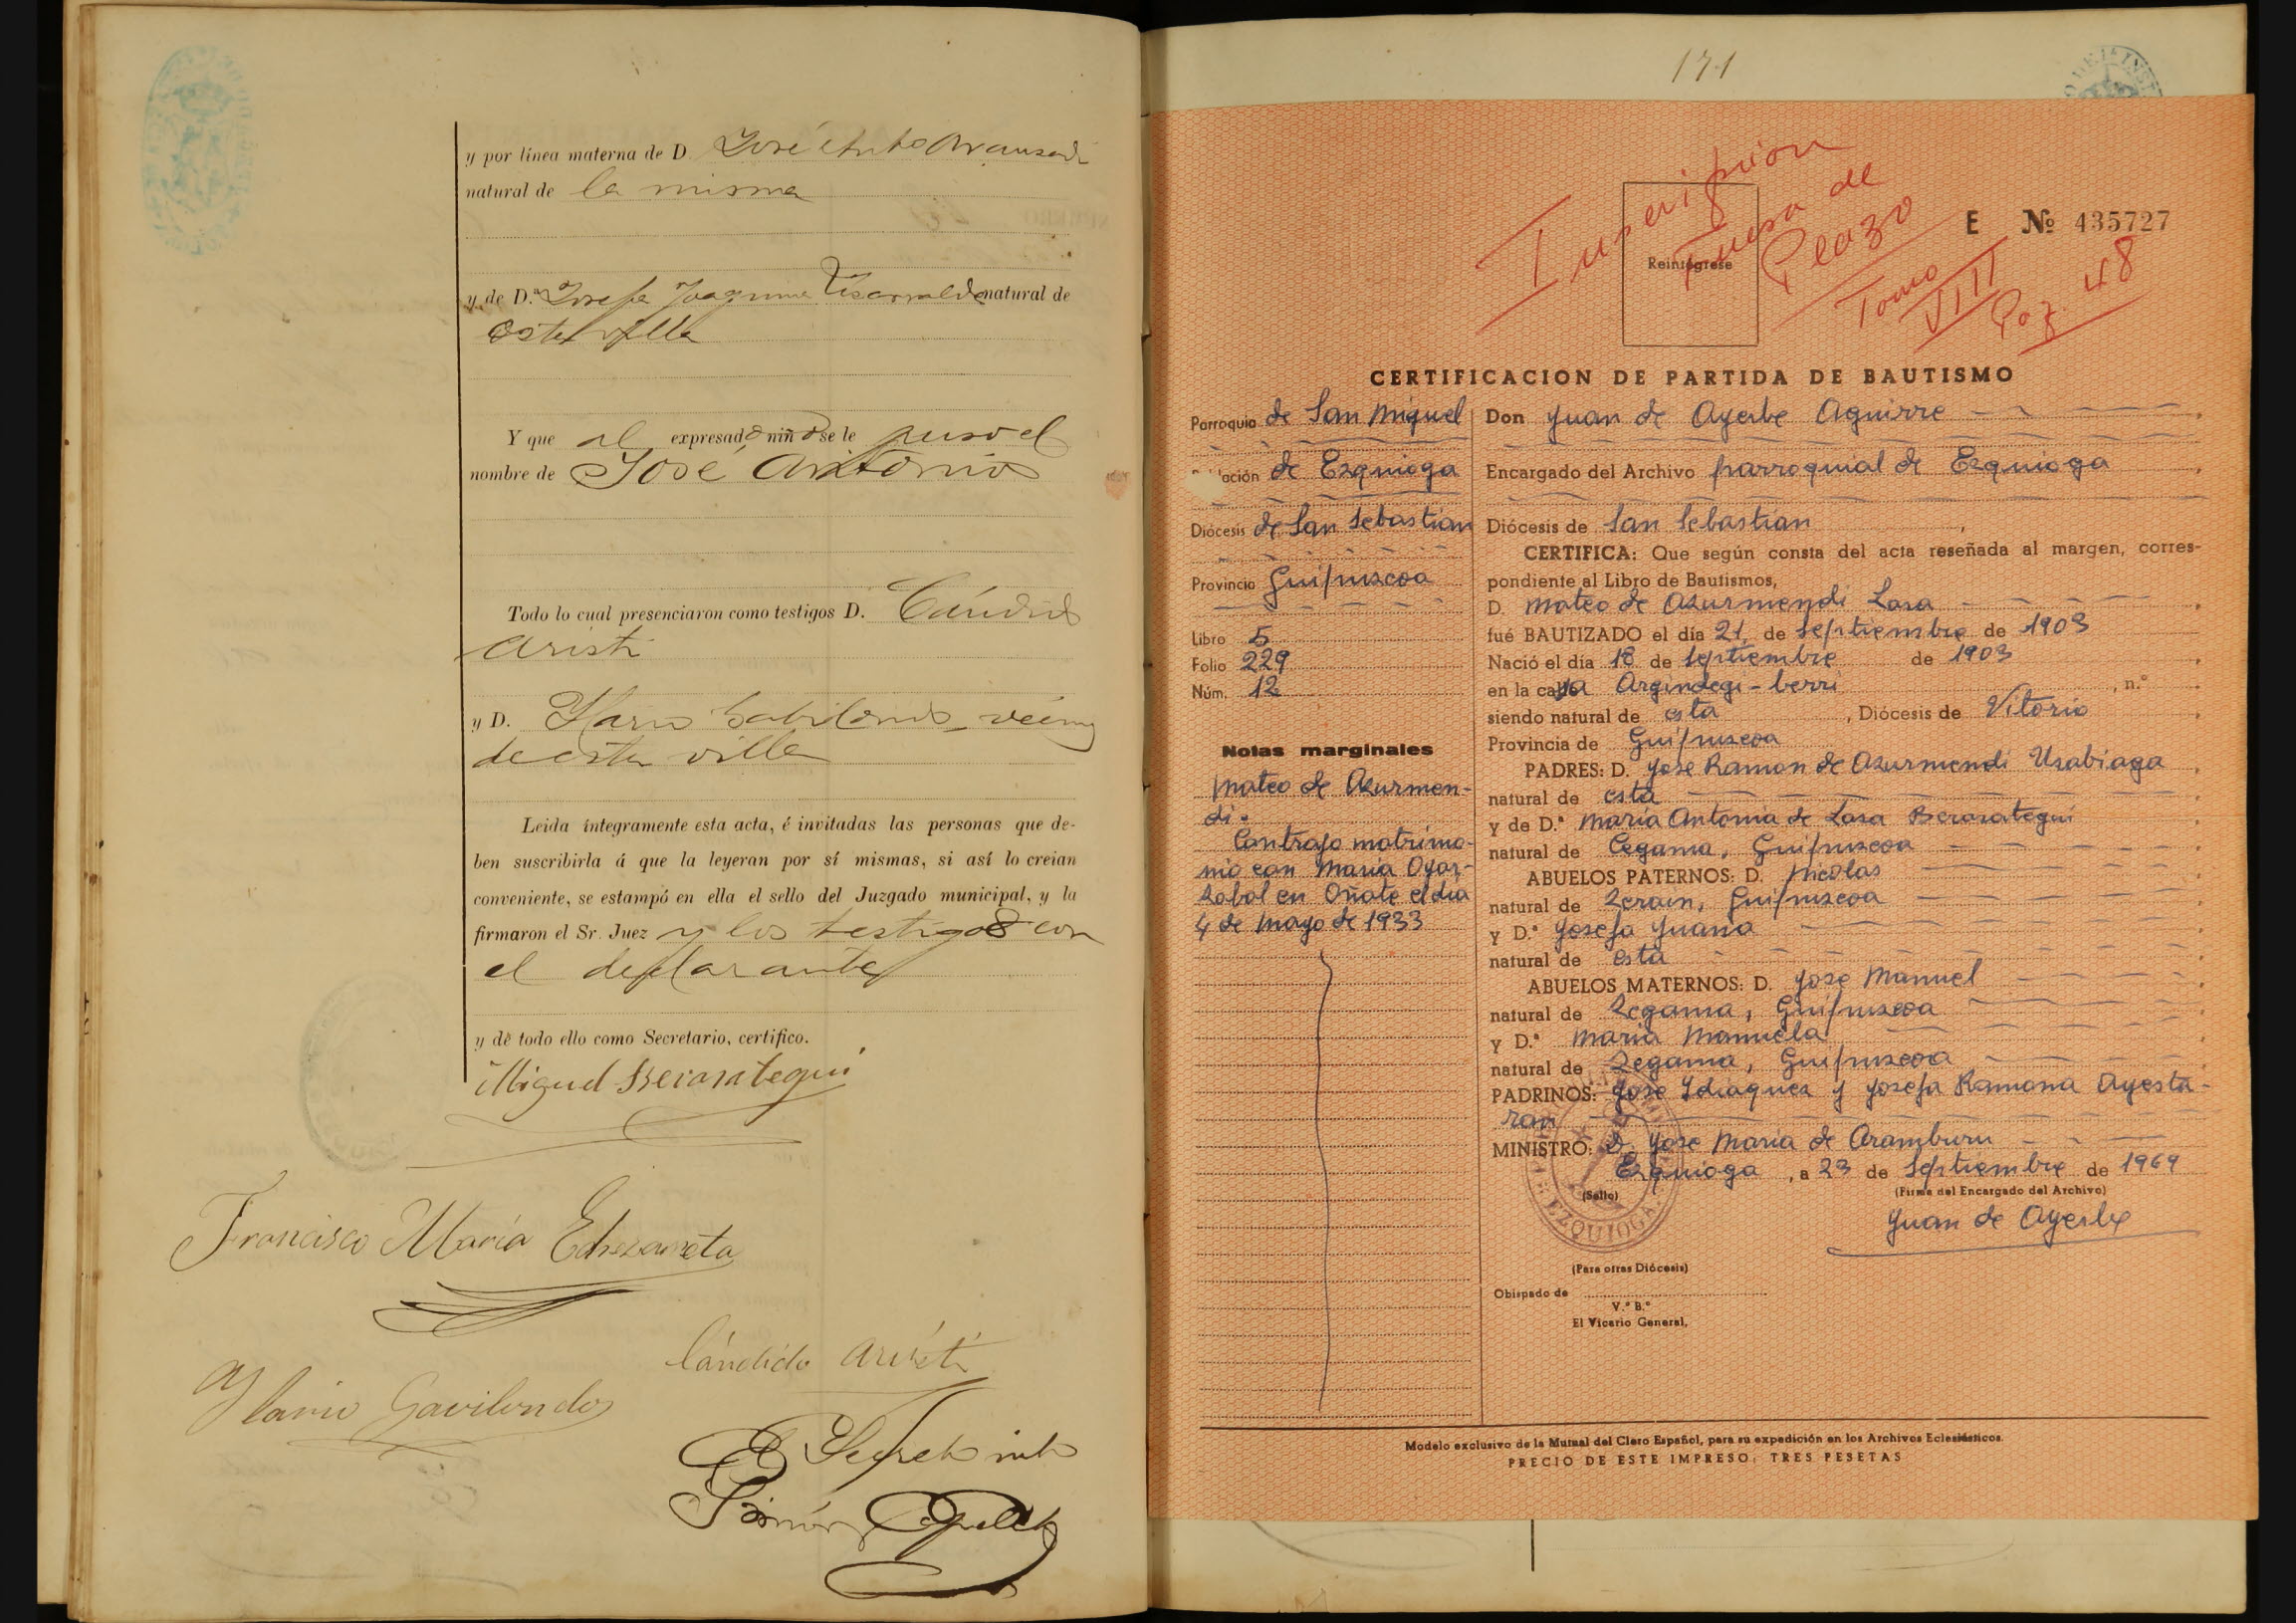 y por línea materna de D. José Anto Aranzadi
natural de la misma
y de D.ª Josefa Joaquina natural de
esta villa
Y que al expresado niño se le puso el
nombre de José Antonio
Todo lo cual presenciaron como testigos D. Cándido
Aristi
y D. Ilario Gabilondo, vecinos
de esta villa
Leida íntegramente esta acta, é invitadas las personas que de-
ben suscribirla á que la leyeran por sí mismas, si así lo creian
conveniente, se estampó en ella el sello del Juzgado municipal, y la
firmaron el Sr. Juez y los testigos con
el declarante
y de todo ello como Secretario, certifico.
Miguel Berasategui
Francisco María Echezarreta
Cándido Aristi
Ylario Gavilondo
El Secret int
Simón
171
Inscripcion
fuera de
Plazo
Tomo
VIII
Pag. 48
E Nº 435727
Reintégrese
CERTIFICACION DE PARTIDA DE BAUTISMO
Parroquia de San Miguel
ación de Ezquioga
Diócesis de San Sebastián
Provincia Guipuzcoa
Libro 5
Folio 229
Núm. 12
Notas marginales
Mateo de Azurmen-
di.
Contrajo matrimo-
nio con Maria Oyar-
zabal en Oñate el dia
4 de Mayo de 1933
Don Juan de Ayerbe Aguirre
Encargado del Archivo parroquial de Ezquioga
Diócesis de San Sebastian
CERTIFICA: Que según consta del acta reseñada al margen, corres-
pondiente al Libro de Bautismos,
D. Mateo de Azurmendi Lasa
fué BAUTIZADO el día 21 de Septiembre de 1903
Nació el día 18 de Septiembre de 1903
en la casa Argindegi-berri , n.º
siendo natural de esta , Diócesis de Vitoria
Provincia de Guipuzcoa
PADRES: D. Jose Ramon de Azurmendi Usabiaga
natural de esta
y de D.ª Maria Antonia de Lasa Berasategui
natural de Cegama, Guipuzcoa
ABUELOS PATERNOS: D. Nicolas
natural de Zerain, Guipuzcoa
Y D.ª Josefa Juana
natural de esta
ABUELOS MATERNOS: D. Jose Manuel
natural de Zegama, Guipuzcoa
y D.ª Maria Manuela
natural de Zegama, Guipuzcoa
PADRINOS: Jose Idiaquez y Josefa Ramona Ayesta-
ran
MINISTRO: D. Jose Maria de Aramburu
Ezquioga, a 23 de Septiembre de 1969
(Sello)
(Firma del Encargado del Archivo)
EZQUIOGA
Juan de Ayerbe
(Para otras Diócesis)
Obispado de
V.º B.º
El Vicario General,
Modelo exclusivo de la Mutual del Clero Español, para su expedición en los Archivos Eclesiásticos.
PRECIO DE ESTE IMPRESO: TRES PESETAS